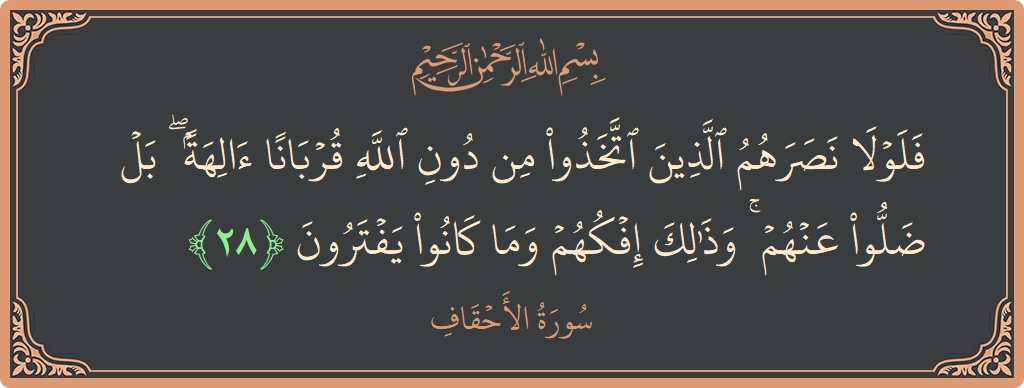 بِسْمِ اللهِ الرَّحْمٰنِ الرَّحِيْمِ
فَلَوۡلَا نَصَرَهُمُ ٱلَّذِينَ ٱتَّخَذُواْ مِن دُونِ ٱللَّهِ قُرۡبَانًا ءَالِهَةَۢۖ بَلۡ
ضَلُّواْ عَنۡهُمۡۚ وَذَٰلِكَ إِفۡكُهُمۡ وَمَا كَانُواْ يَفۡتَرُونَ ﴿٢٨﴾
سُورَةُ الأَحۡقَافِ